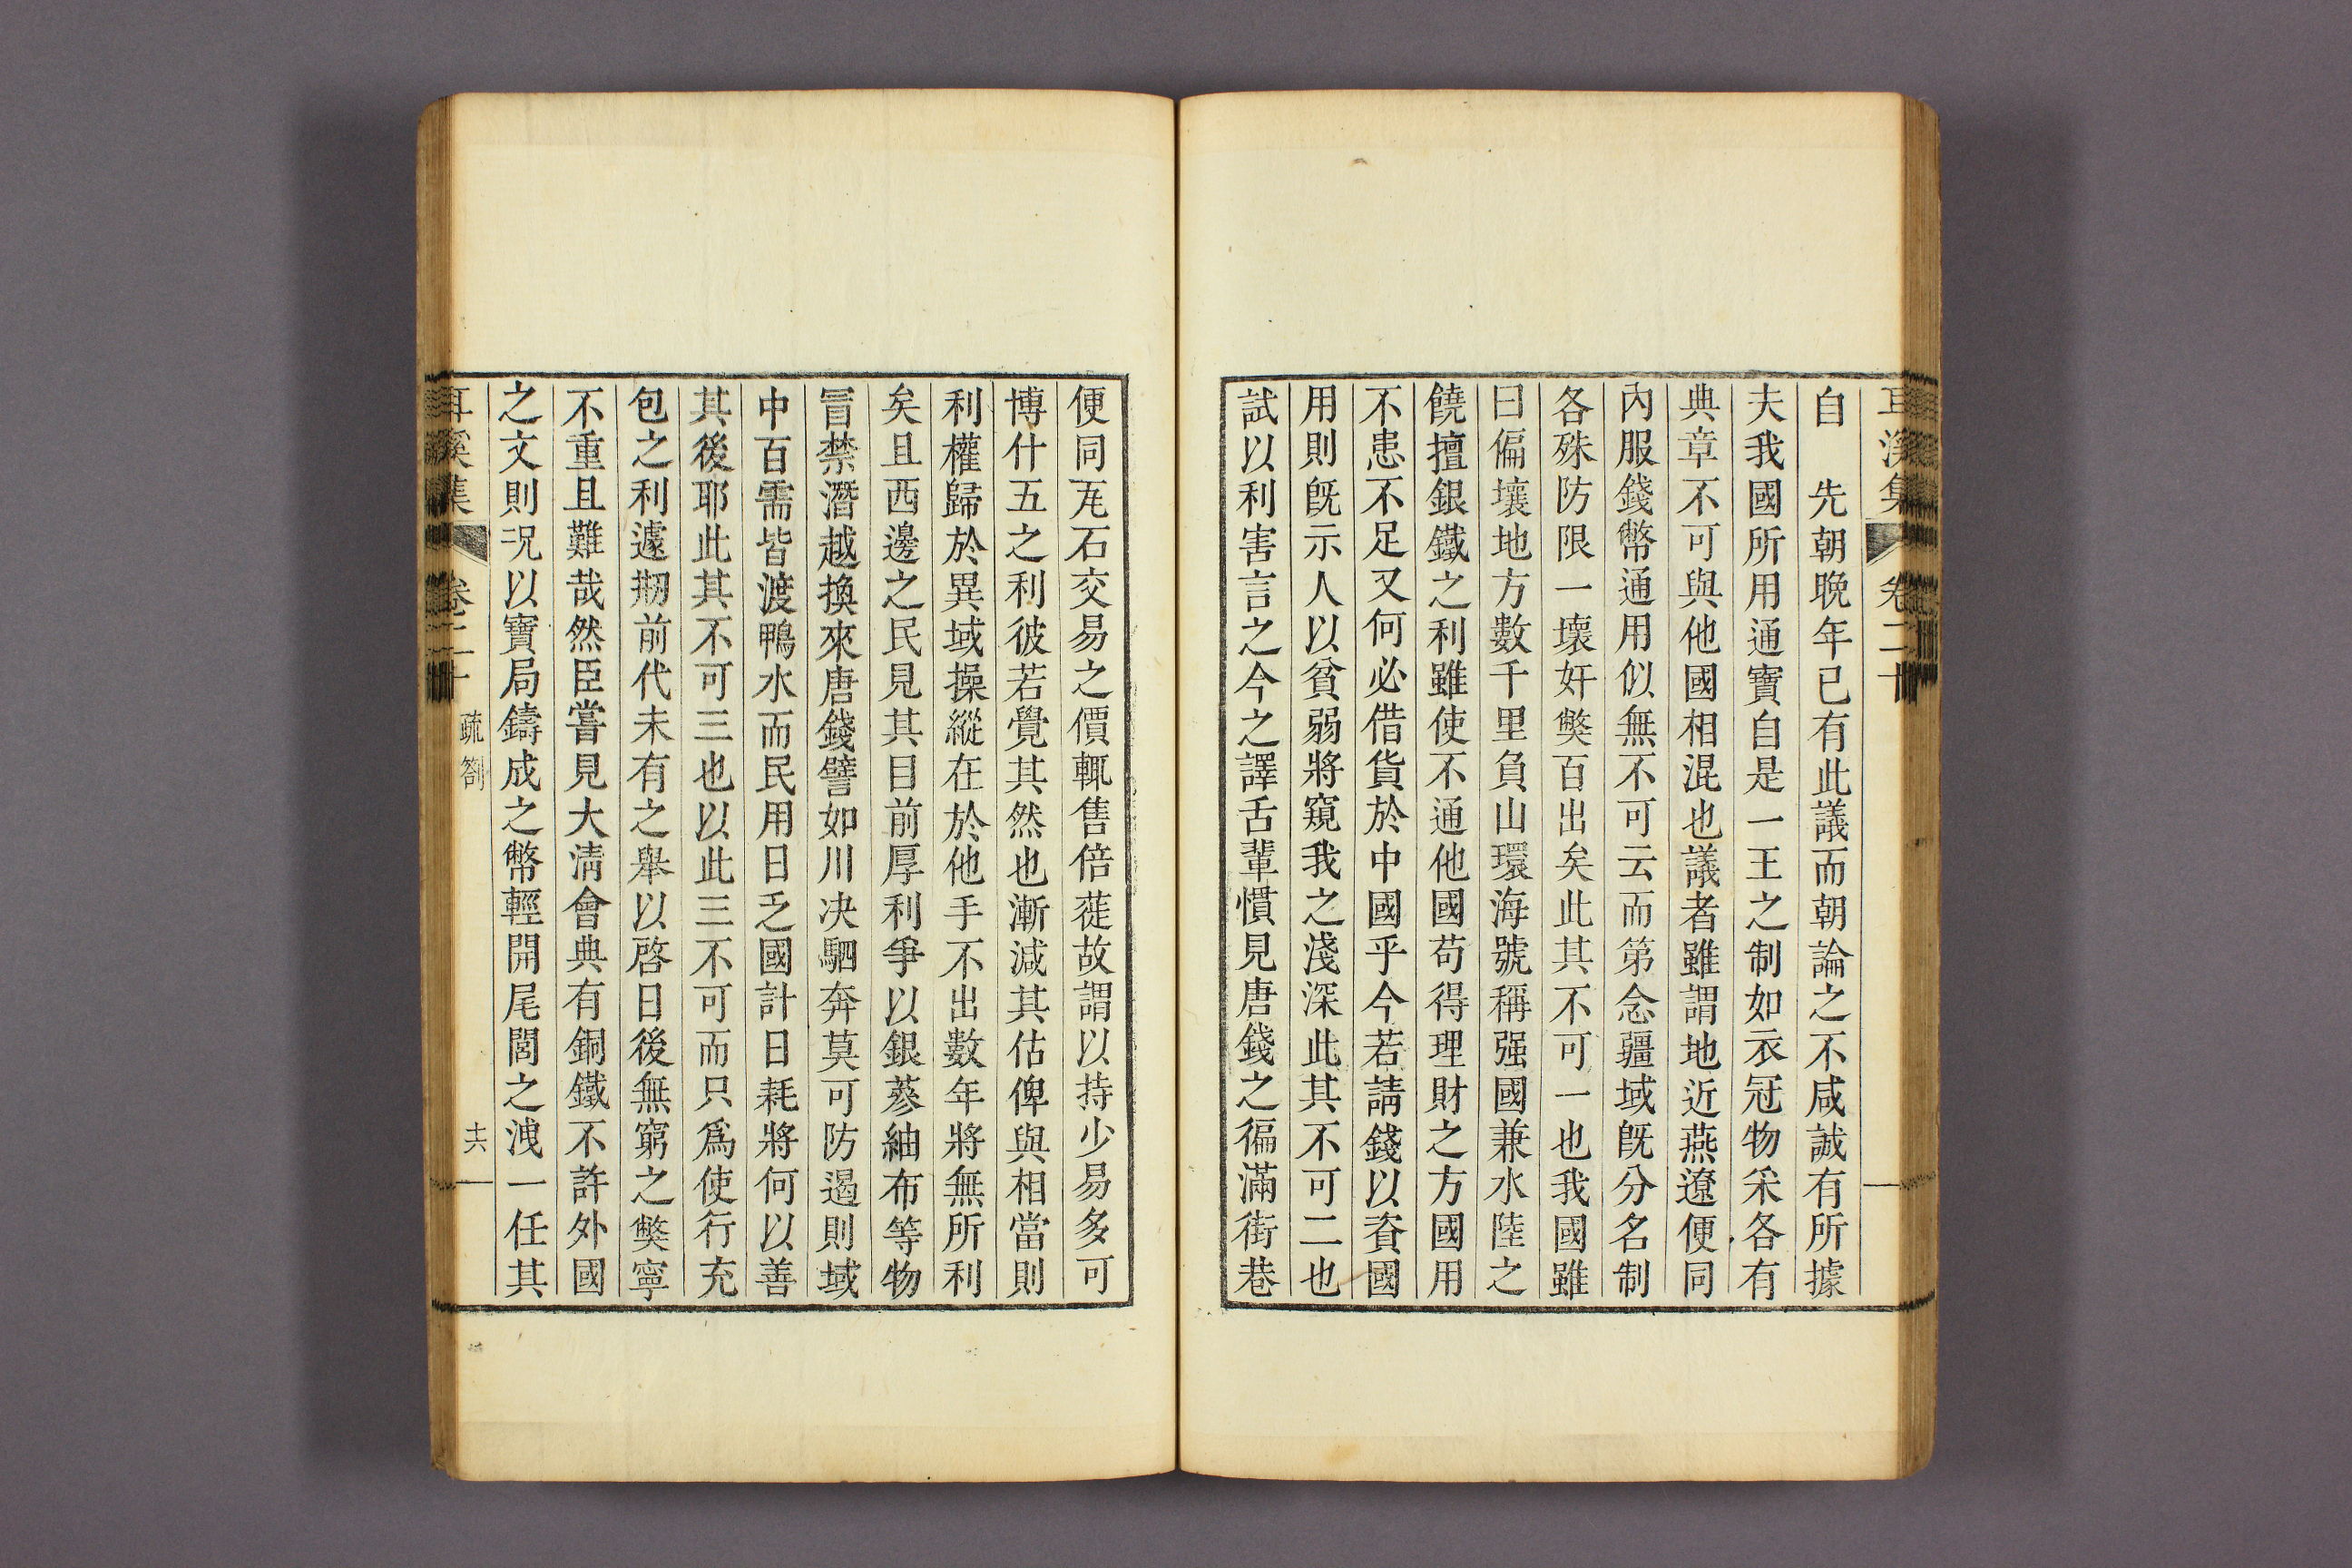 耳溪集 卷二十
自　先朝晚年已有此議而朝論之不咸誠有所據
夫我國所用通寶自是一王之制如衣冠物采各有
典章不可與他國相混也議者雖謂地近燕遼便同
內服錢幣通用似無不可云而第念疆域旣分名制
各殊防限一壞奸獘百出矣此其不可一也我國雖
曰偏壤地方數千里負山環海號稱强國兼水陸之
饒擅銀鐵之利雖使不通他國苟得理財之方國用
不患不足又何必借貨於中國乎今若請錢以資國
用則旣示人以貧弱將窺我之淺深此其不可二也
試以利害言之今之譯舌輩慣見唐錢之徧滿街巷
便同瓦石交易之價輒售倍蓰故謂以持少易多可
博什五之利彼若覺其然也漸減其估俾與相當則
利權歸於異域操縱在於他手不出數年將無所利
矣且西邊之民見其目前厚利爭以銀蔘紬布等物
冒禁潛越換來唐錢譬如川决駟奔莫可防遏則域
中百需皆渡鴨水而民用日乏國計日耗將何以善
其後耶此其不可三也以此三不可而只爲使行充
包之利遽刱前代未有之舉以啓日後無窮之獘寧
不重且難哉然臣嘗見大淸會典有銅鐵不許外國
之文則况以寶局鑄成之幣輕開尾閭之洩一任其
耳溪集 卷二十 疏劄 十六